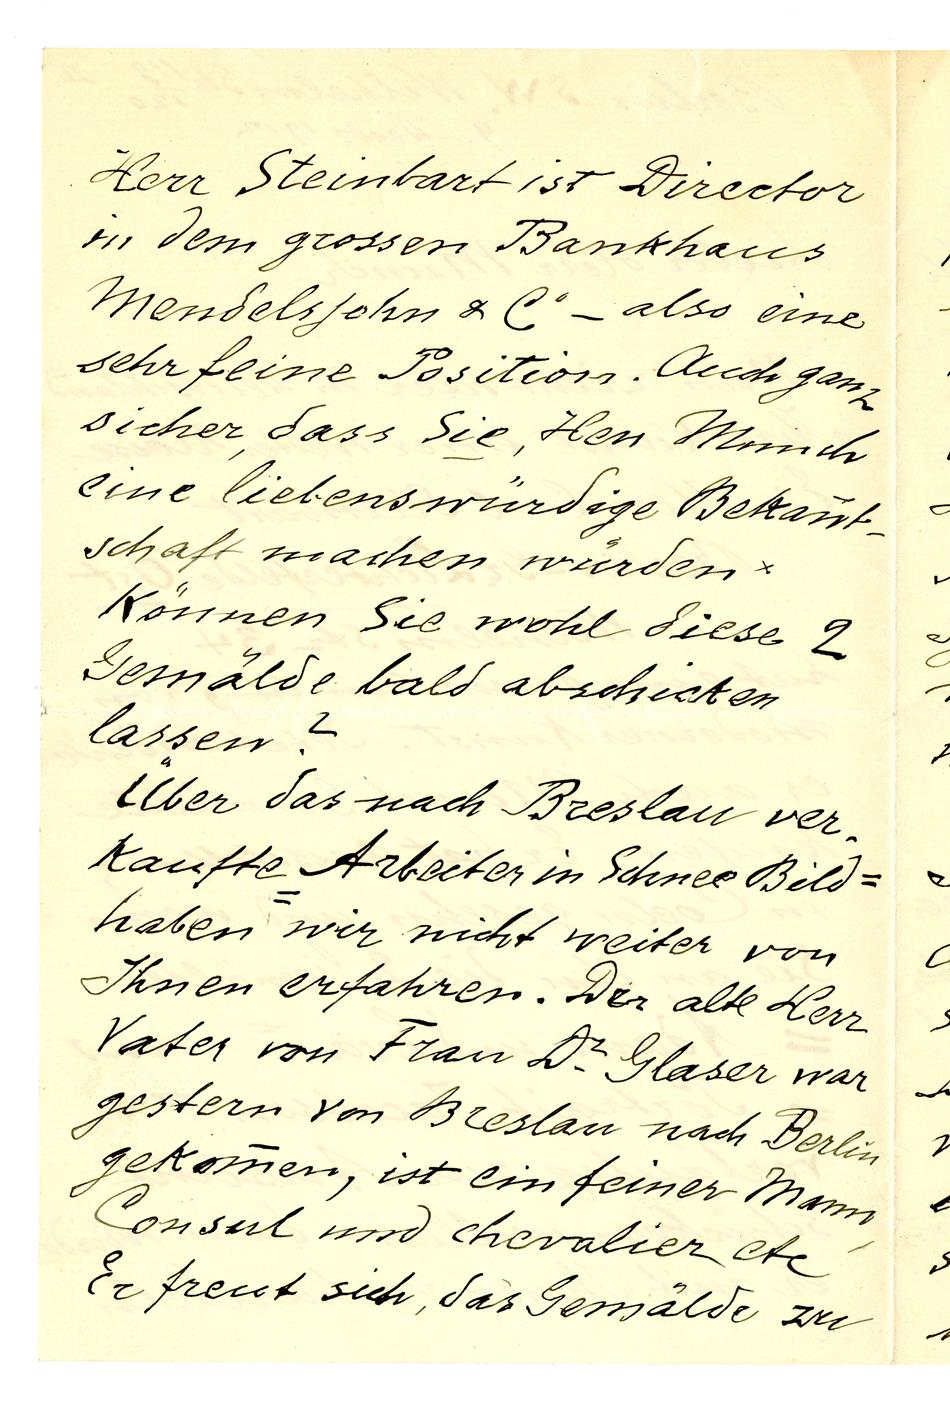 Herr Steinbart ist Director
in dem grossen Bankhaus
Mendelsjohn & Cº – also eine
sehr feine Position. Auch ganz
sicher, dass Sie, Herr Munch
eine liebenswürdige Bekan̄t-
schaft machen würden ×
Können Sie wohl diese 2
Gemälde bald abschicken
lassen?
Über das nach Breslau ver-
kaufte Arbeiter in Schnee Bild=
haben wir nicht weiter von
Ihnen erfahren. Der alte Herr
Vater von Frau Dr. Glaser war
gestern von Breslau nach Berlin
gekom̄en, ist ein feiner Mann,
Consul und chevalier etc
Er freut sich, das Gemälde zu